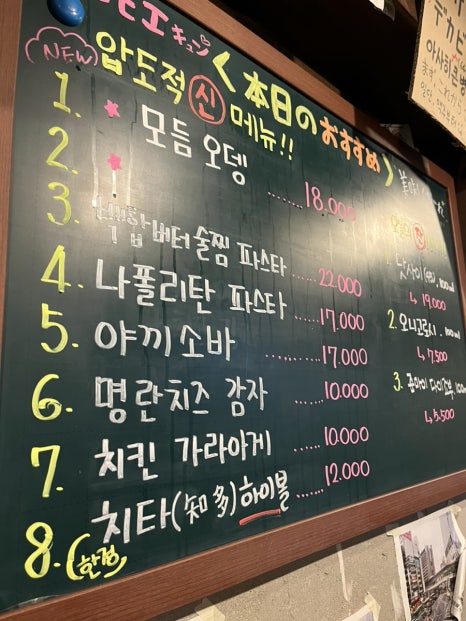 エ キュン
NEW 압도적 신 메뉴!! < 本日のおすすめ >
1. ★ 모듬 오뎅 ...... 18.000
2. ★
3. 백합버터술찜 파스타 ...... 22.000
4. 나폴리탄 파스타 ...... 17.000
5. 야끼소바 ......... 17.000
6. 명란치즈 감자 ...... 10.000
7. 치킨 가라아게 ...... 10.000
8. (한정) 치타(知多)하이볼 ...... 12.000
↳ 19,000
2. 오니고로시
↳ 7,500
3.
↳ 5,500